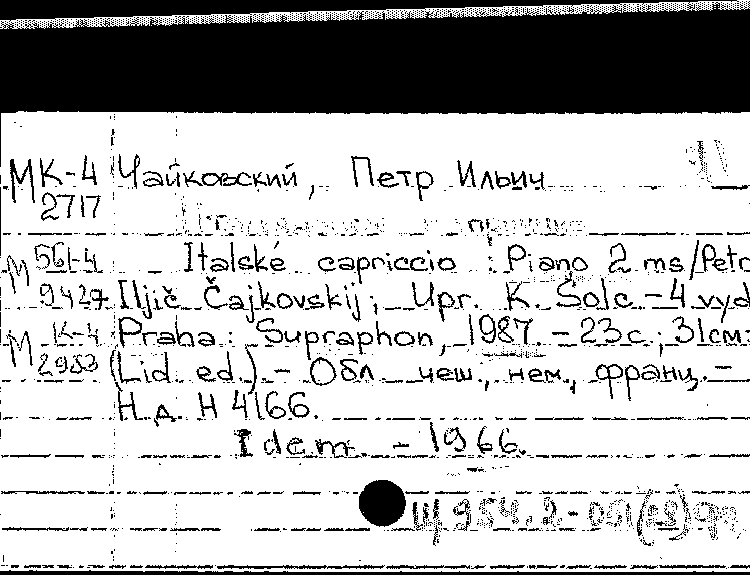 МК-4 Чайковский, Петр Ильич
2717
М 561-4 Italské capriccio : Piano 2 ms/Petr
9427 Iljič Čajkovskij; Upr. K. Šolc - 4 vyd
М К-4 Praha: Supraphon, 1987. - 23 с.; 31см.
2953 (Lid. ed.) - Обл. чеш., нем., франц. -
Н.д. Н 4166.
Idem. - 1966.
Щ 954.2-051